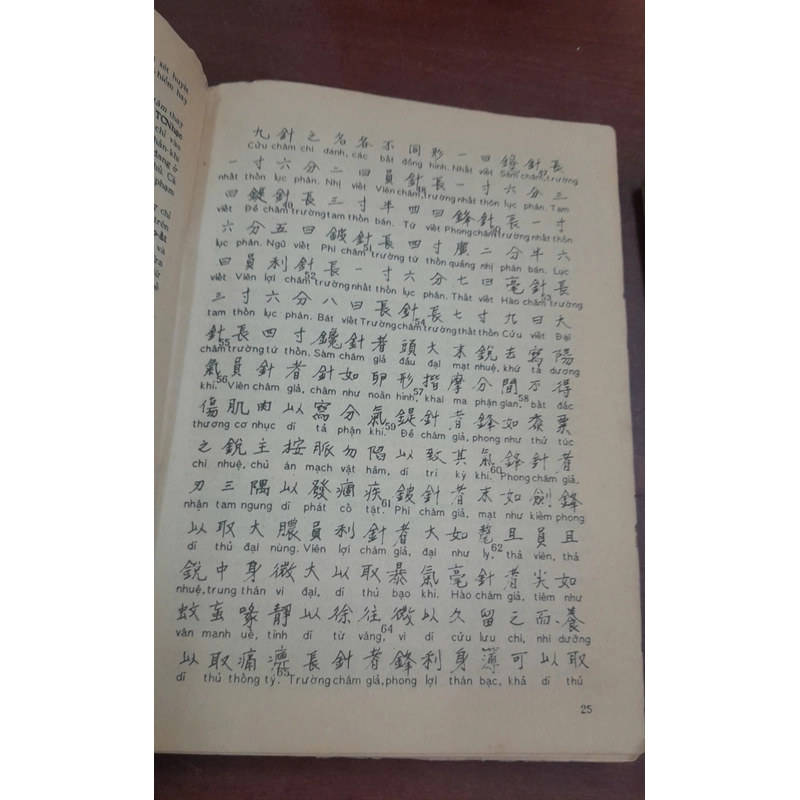 xét huyệt
hiểm hay
tấm thay
TCNhạc
chỉ vào
hần khi
dang ở
hủ. Cả
phạm
chỉ
trên
và
ra
tử
九針之名各不同形一曰鑱針長
Cửu châm chi danh, các bất đồng hình. Nhất viết Sàm châm,47trường
一寸六分二曰員針長一寸六分三
nhất thốn lục phân. Nhị viết Viên châm,48trường nhất thốn lục phân. Tam
曰鍉針長三寸半四曰鋒針長一寸
viết Đề châm49trường tam thốn bán. Tứ viết Phong châm50trường nhất thốn
六分五曰鈹針長四寸廣二分半六
lục phân. Ngũ viết Phi châm51trường tứ thốn quảng nhị phân bán. Lục
曰員利針長一寸六分七曰毫針長
viết Viên lợi châm52trường nhất thốn lục phân. Thất viết Hào châm53trường
三寸六分八曰長針長七寸九曰大
tam thốn lục phân. Bát viết Trường châm54trường thất thốn Cửu viết Đại
針長四寸鑱針者頭大末銳去寫陽
châm55trường tứ thốn. Sàm châm giả đầu đại mạt nhuệ, khứ tả dương
氣員針者針如卵形揩摩分間不得
khí.56Viên châm giả, châm như noãn hình,57khai ma phận gian,58bất đắc
傷肌肉以寫分氣鍉針者鋒如黍粟
thương cơ nhục dĩ tả phận khí.59Đề châm giả, phong như thử túc
之銳主按脈勿陷以致其氣鋒針者
chi nhuệ, chủ án mạch vật hãm, dĩ trí kỳ khí.60Phong châm giả,
刃三隅以發痼疾鈹針者末如劍鋒
nhận tam ngung dĩ phát cố tật.61Phi châm giả, mạt như kiếm phong
以取大膿員利針者大如氂且員且
dĩ thủ đại nùng. Viên lợi châm giả, đại như ly,62thả viên, thả
銳中身微大以取暴氣毫針者尖如
nhuệ, trung thân vi đại, dĩ thủ bạo khí. Hào châm giả, tiêm như
蚊虻喙靜以徐往微以久留之而養
văn manh uế, tĩnh dĩ từ vãng,64vi dĩ cửu lưu chi, nhi dưỡng
以取痛痹長針者鋒利身薄可以取
dĩ thủ thống tý.65Trường châm giả, phong lợi thân bạc, khả dĩ thủ
25